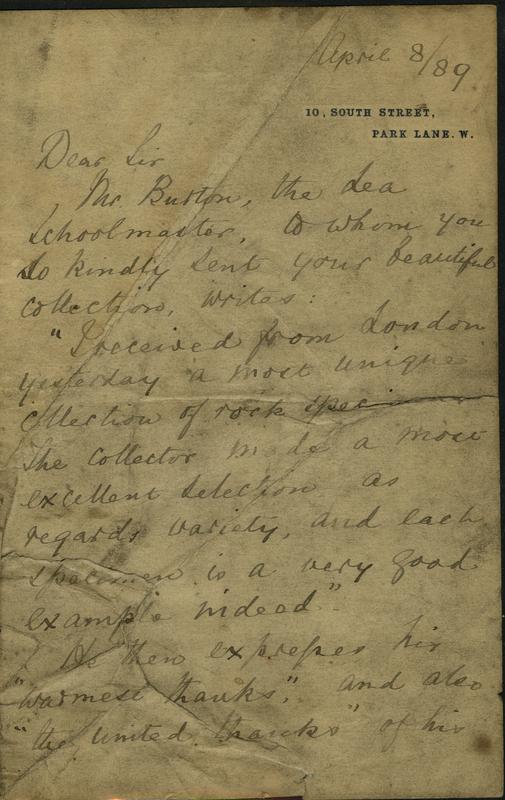 April 8/89
10, SOUTH STREET,
PARK LANE. W.
Dear Sir
Mr Burton, the Lea
Schoolmaster, to whom you
so kindly sent your beautiful
collection, writes:
"I received from London
yesterday a most unique
collection of rock speci
The collector made a most
excellent selection as
regards variety, and each
specimen is a very good
example indeed"
He then expresses his
"warmest thanks", and also
"the united thanks" of his